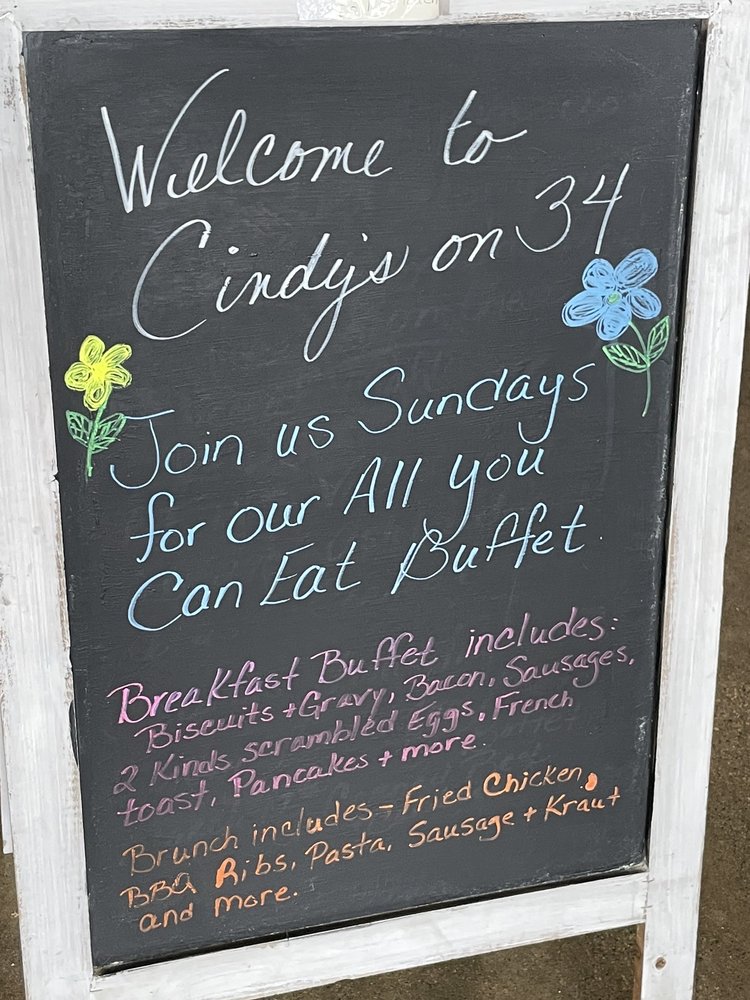 Welcome to
Cindy's on 34
Join us Sundays
for our All you
Can Eat Buffet.
Breakfast Buffet includes:
Biscuits + Gravy, Bacon, Sausages,
2 Kinds scrambled Eggs, French
toast, Pancakes + more.
Brunch includes - Fried Chicken,
BBQ Ribs, Pasta, Sausage + Kraut
and more.